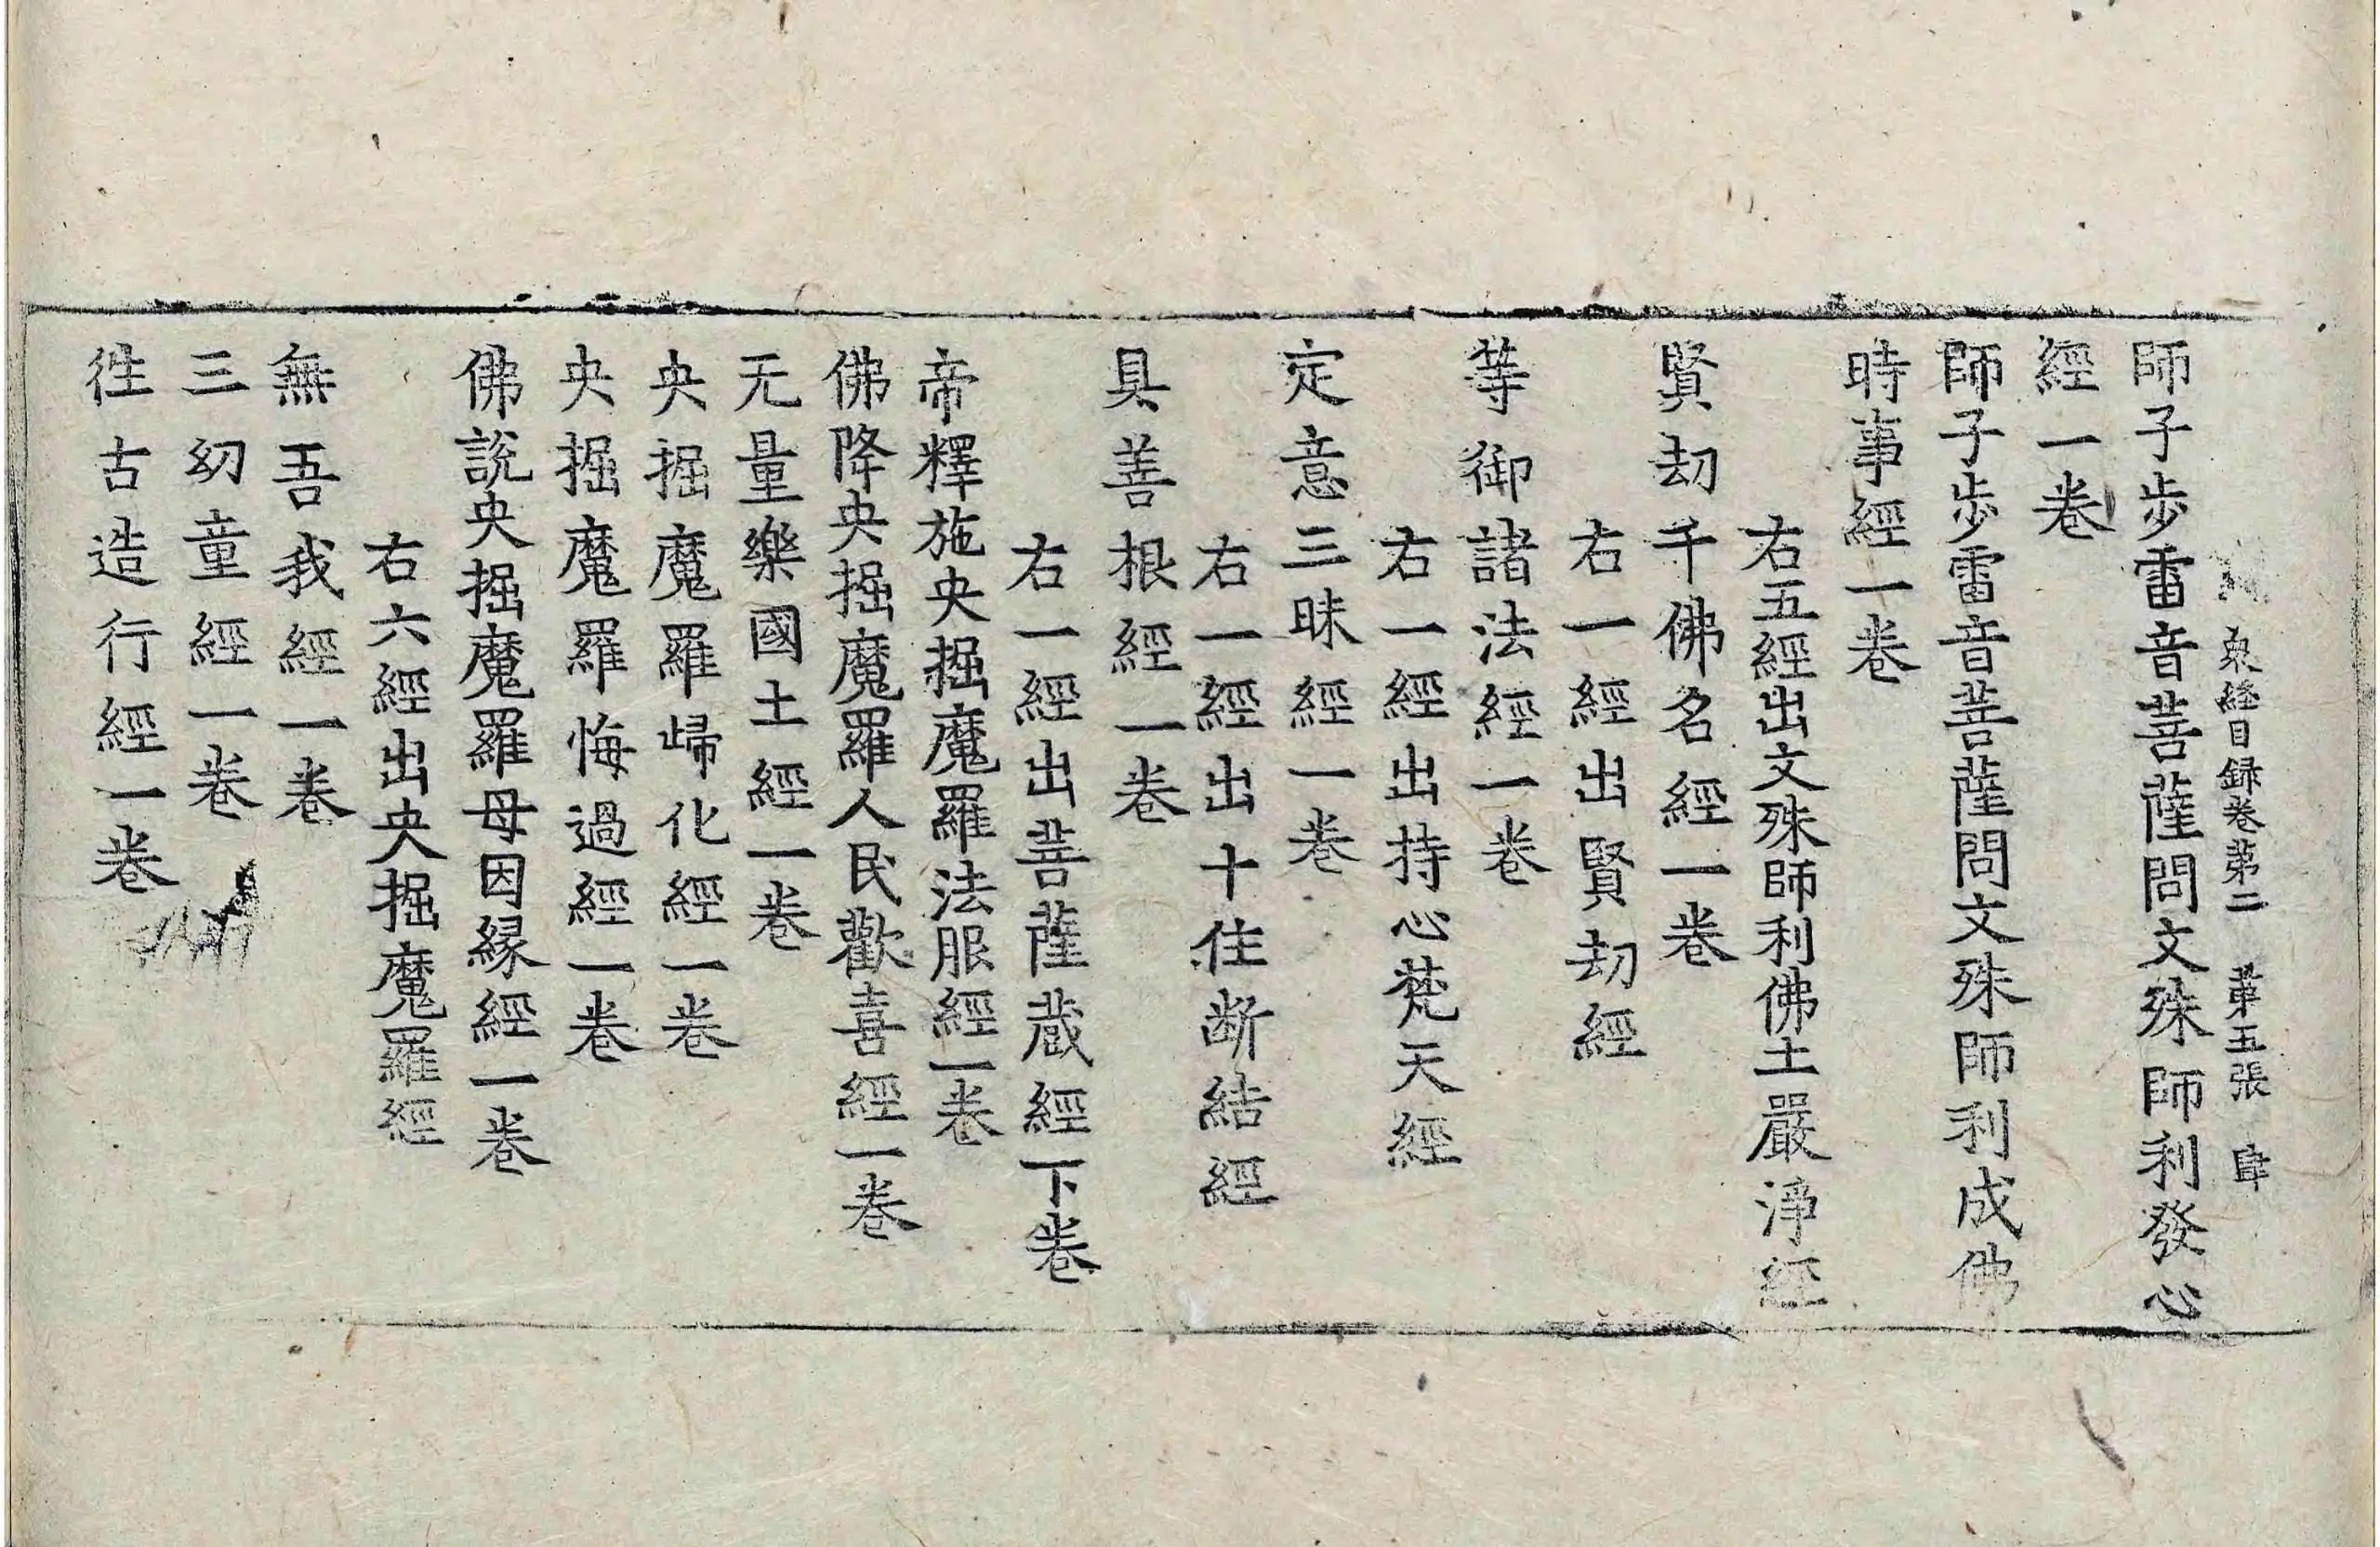 衆経目録卷第二　第五張　肆
師子步雷音菩薩問文殊師利發心
經一卷
師子步雷音菩薩問文殊師利成佛
時事經一卷
右五經出文殊師利佛土嚴淨經
賢劫千佛名經一卷
右一經出賢劫經
等御諸法經一卷
右一經出持心梵天經
定意三昧經一卷
右一經出十住断結經
具善根經一卷
右一經出菩薩蔵經下卷
帝釋施央掘魔羅法服經一卷
佛降央掘魔羅人民歡喜經一卷
无量樂國土經一卷
央掘魔羅歸化經一卷
央掘魔羅悔過經一卷
佛說央掘魔羅母因縁經一卷
右六經出央掘魔羅經
無吾我經一卷
三幼童經一卷
往古造行經一卷